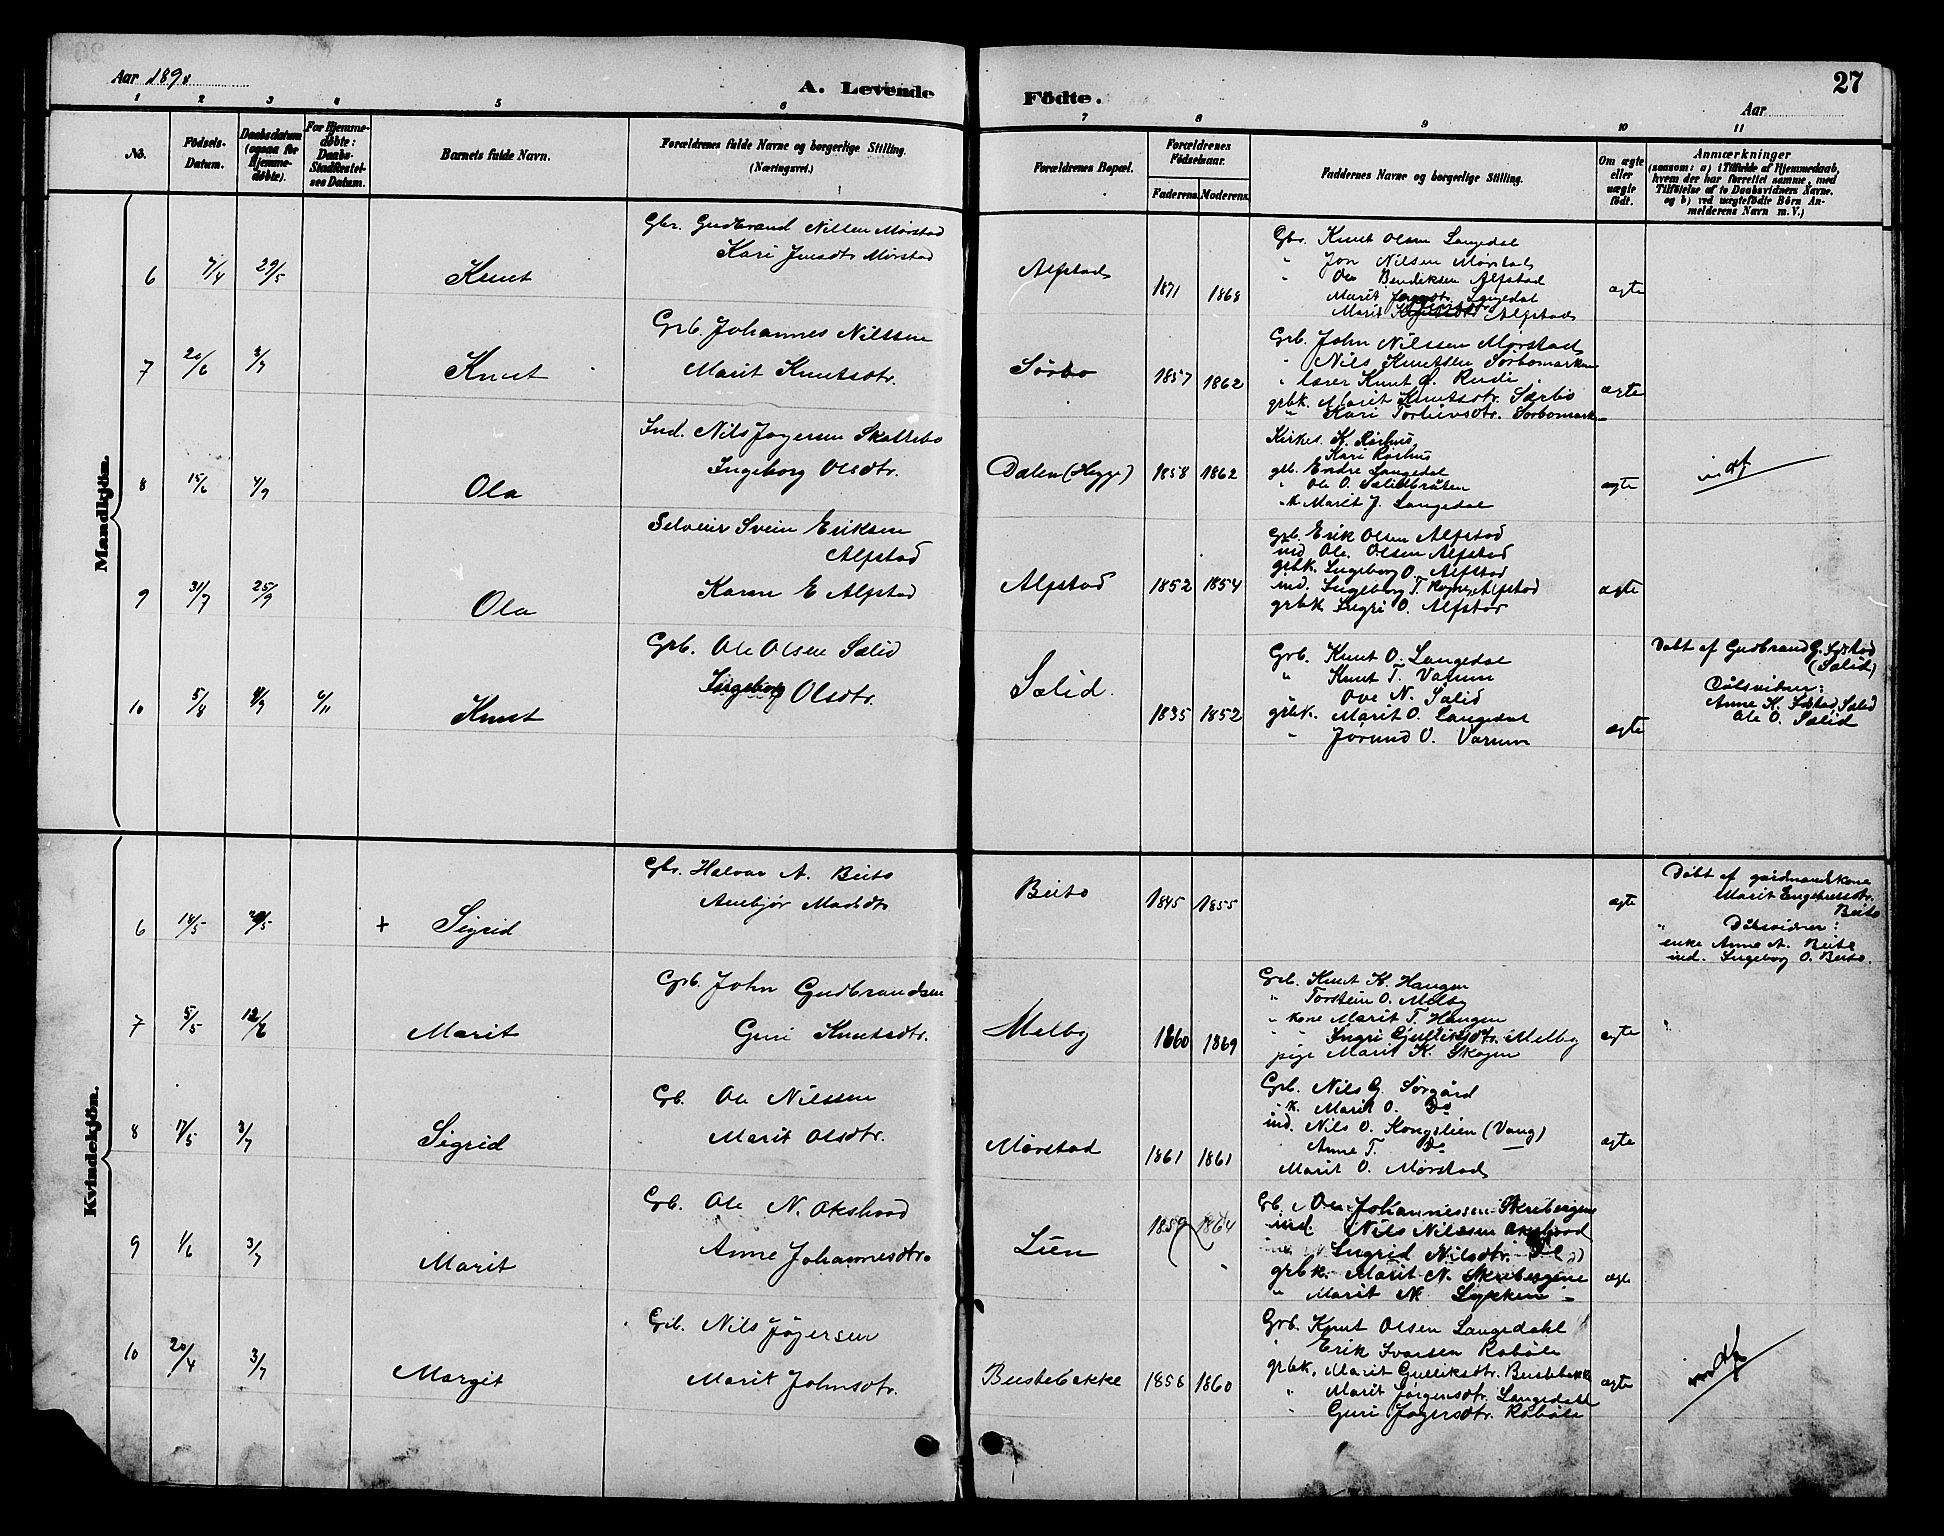 Aar 189
A. Levende Födte.
27
Aar
1 2 3 4 5 6 7 8 9 10 11
No.
Födsels-
Datum.
Daabsdatum
(ogsaa for
Hjemme-
döbte).
For Hjemme-
døbte:
Daabs-
Stadfæstel-
ses Datum.
Barnets fulde Navn.
Forældrenes fulde Navne og borgerlige Stilling.
(Næringsvei.)
Forældrenes Bopæl.
Forældrenes
Födselsaar.
Faderens. Moderens.
Faddernes Navne og borgerlige Stilling.
Om ægte
eller
uægte
födt.
Anmærkninger
(saasom: a) i Tilfælde af Hjemmedaab,
hvem der har forrettet samme, med
Tilföielse af to Daabsvidners Navne.
og b) ved uægtefödte Börn An-
melderens Navn m. V.)
Mandkjön.
6 7/4 29/5 Knut
Gbr. Gudbrand Nilsen Mørstad
Kari Mørstad
Alfstad
1871 1868
Gbr. Knut Olsen Langedal
" Jon Nilsen Mørstad
" Ole Bendiksen Alfstad
Marit Langedal
Marit Alfstad
ægte
7 20/6 3/7 Knut
Grb. Johannes Nilssen
Marit Knutsdtr.
Sørbo
1857 1862
Grb. John Nilssen Mørstad
" Nils Knutssen Sørbomarken
" lærer Knut O. Rudi
grbk. Marit Knutsdtr. Sørbo
" Kari Torleivsdtr. Sørbomark
ægte
8 15/6 4/9 Ola
Ind. Nils Jøgersen Skattebo
Ingeborg Olsdtr.
Dalen (Hegge)
1858 1862
Kirkes. K. Røshus
Kari Røshus
gb. Endre Langedal
" Ole O. Sælidbråten
" k Marit J. Langedal
ægte
indf
9 31/7 25/9 Ola
Selveier Svein Eriksen
Alfstad
Karen E Alfstad
Alfstad
1852 1854
Grb. Erik Olsen Alfstad
ind Ole Olsen Alfstad
grbk. Ingeborg O. Alfstad
ind. Ingeborg T. Rogne, Alfstad
grbk Ingri O. Alfstad
ægte
10 5/8 4/9 6/11 Knut
Grb. Ole Olsen Sælid
Ingeborg Olsdtr.
Sælid.
1835 1852
Grb. Knut O. Langedal
" Knut T. Varum
Ove N. Sælid
grbk. Marit O. Langedal
" Jørund O. Varum
ægte
Døbt af Gudbrand G.
(Sælid)
Dåbsvidner:
Anne K. Sælid
Ole O. Sælid
Kvindekjön.
6 18/5 + Sigrid
Gbr. Halvor A. Beito
Annbjør Madsdtr
Beito
1845 1855
ægte
Døbt af gårdmandskone
Marit Engebretsdtr.
Beito
" Dåbsvidner:
enke Anne A. Beito
ind. Ingeborg O. Beito.
7 5/5 12/6 Marit
Grb. John Gudbrandsen
Guri Knutsdtr.
Melby
1860 1869
Grb. Knut K. Haugen
" Torstein O. Melby
" kone Marit T. Haugen
" " Ingri Gulliksdtr. Melby
pige Marit K. Skogen
ægte
8 17/5 3/7 Sigrid
Gb. Ole Nilssen
Marit Olsdtr.
Mørstad
1861 1861
Grb. Nils G. Sørgård
" k. Marit O. Do
ind. Nils O. Kongslien (Vang)
Anne T. Do
Marit O. Mørstad
ægte
9 1/6 3/7 Marit
Grb. Ole N. Okshovd
Anne Johannesdtr.
Lien
1859 1864
Gb. Ole Johannessen Skrebergene
ind. Nils Nilssen Okshovd
Ingrid Nilsdtr.
grbk. Marit N. Skrebergene
" Marit N. Lykken
ægte
10 20/4 3/7 Margit
Grb. Nils Jøgersen
Marit Johnsdtr.
Beistebakke
1858 1860
Grb. Knut Olsen Langedahl
" Erik Ivarsen Robøle
grbk. Marit Gulliksdtr. Beistebakke
" Marit Jørgensdtr. Langedahl
" Guri Jøgersdtr. Robøle
ægte
indf